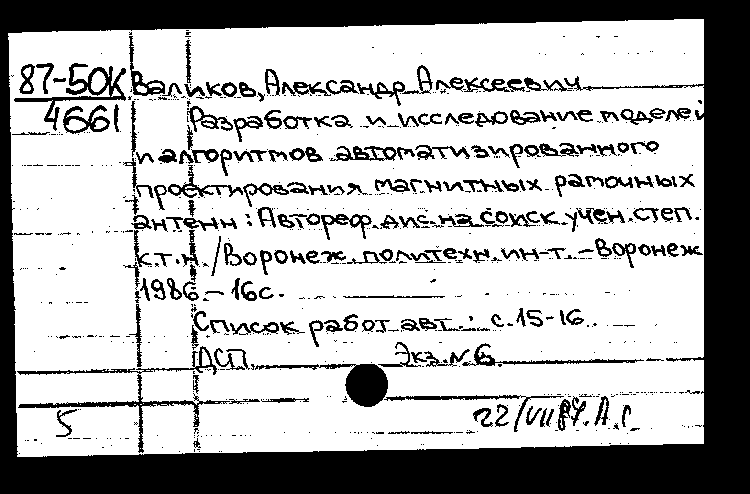 87-50К Валиков, Александр Алексеевич.
4661 Разработка и исследование моделей
и алгоритмов автоматизированного
проектирования магнитных рамочных
антенн: Автореф. дис. на соиск. учен. степ.
к.т.н. / Воронеж. политехн. ин-т. – Воронеж
1986. – 16с.
Список работ авт.: с. 15-16.
ДСП. Экз. N 6.
5 22/VII 87. А.Г.